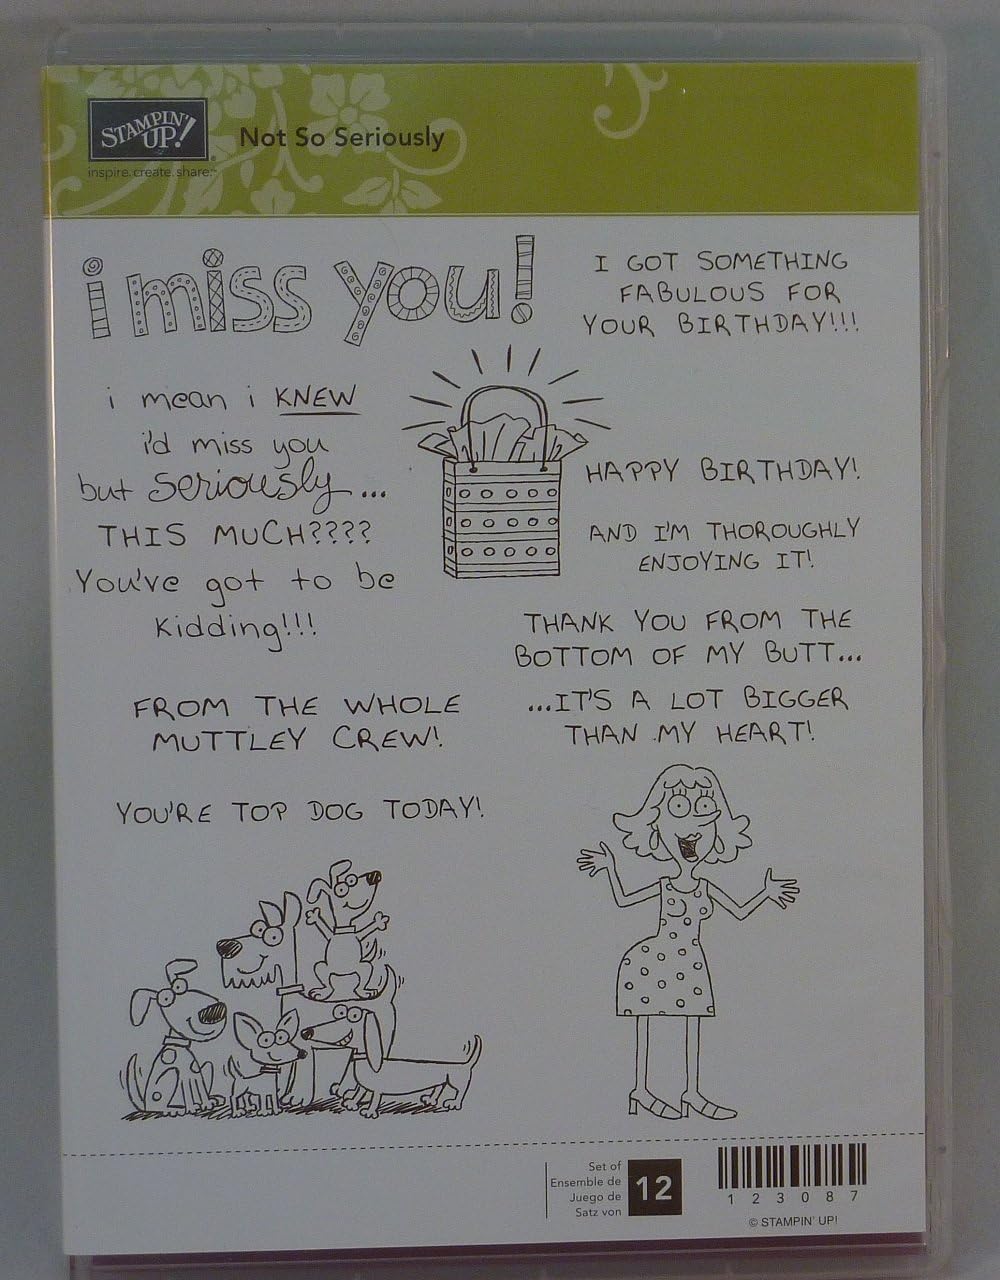 STAMPIN' UP!
inspire.create.share.™
Not So Seriously
i miss you!
I GOT SOMETHING
FABULOUS FOR
YOUR BIRTHDAY!!!
i mean i KNEW
i'd miss you
but seriously...
THIS MUCH????
You've got to be
kidding!!!
HAPPY BIRTHDAY!
AND I'M THOROUGHLY
ENJOYING IT!
THANK YOU FROM THE
BOTTOM OF MY BUTT...
...IT'S A LOT BIGGER
THAN MY HEART!
FROM THE WHOLE
MUTTLEY CREW!
YOU'RE TOP DOG TODAY!
Set of
Ensemble de
Juego de
Satz von
12
123087
© STAMPIN' UP!